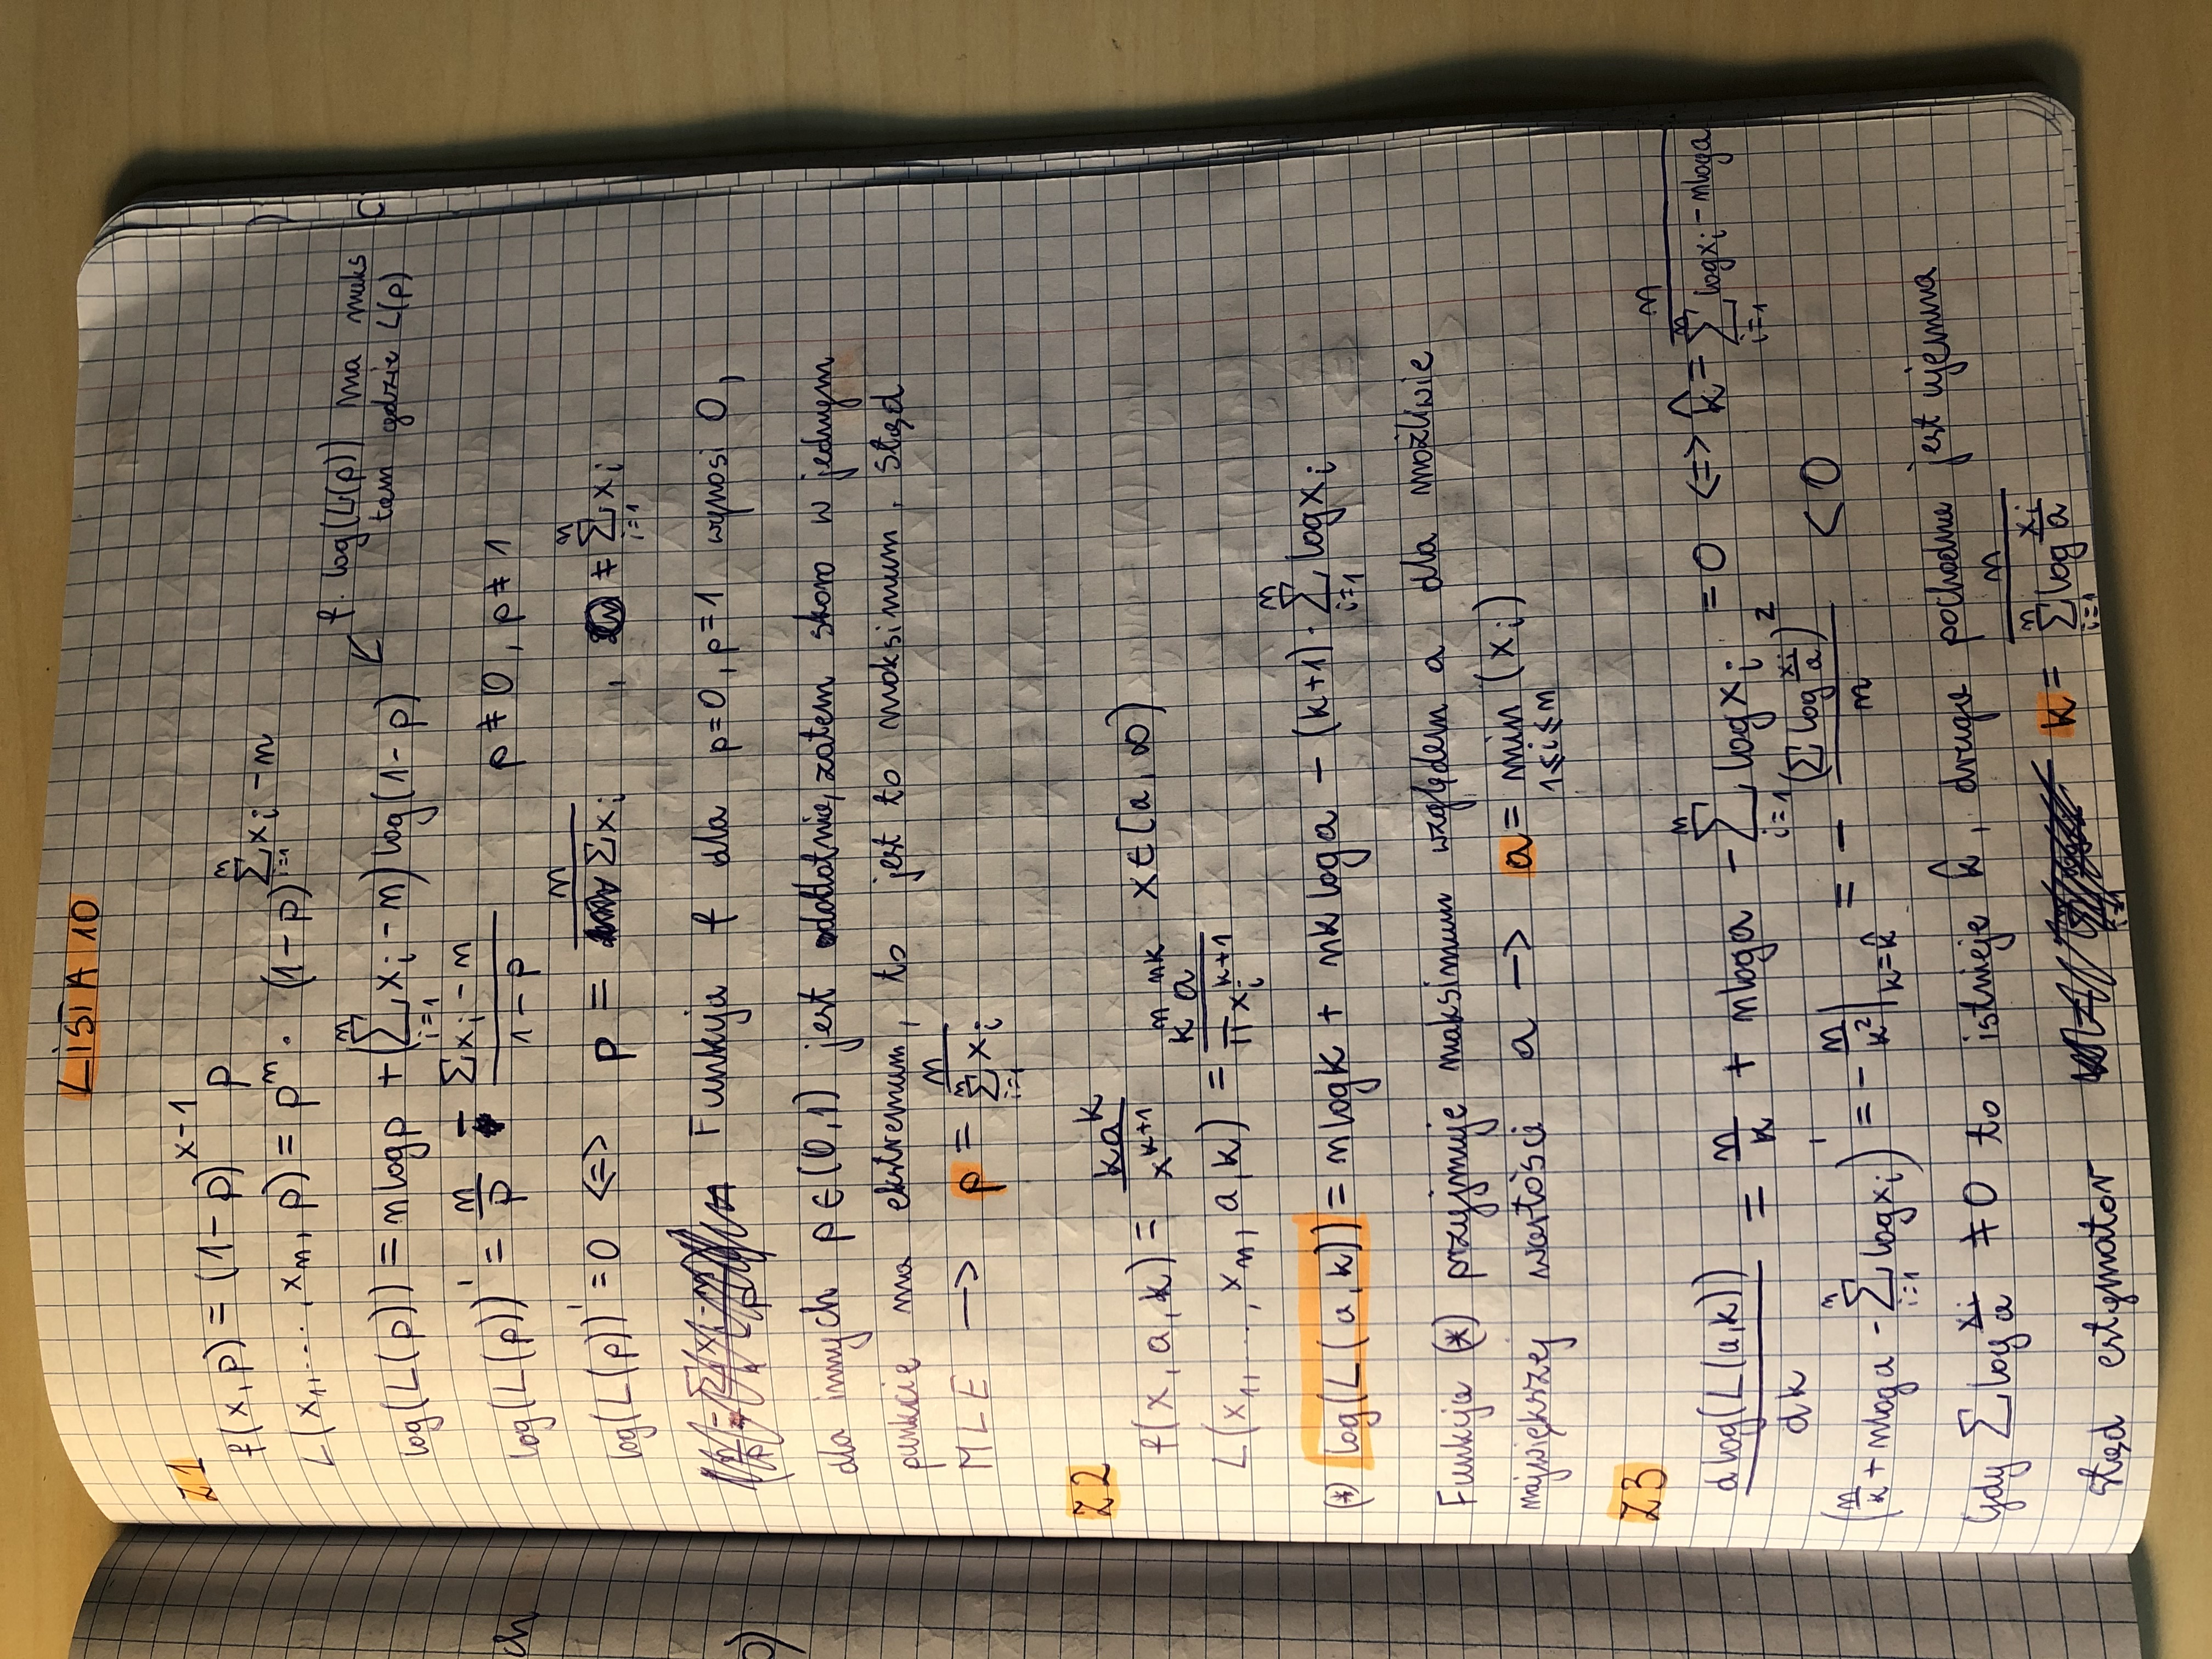 LISTA 10
Z1
f(x, p) = (1-p)^{x-1} p
L(x_1, ..., x_n, p) = p^n · (1-p)^{\sum_{i=1}^{n} x_i - n}
log(L(p)) = n log p + (\sum_{i=1}^{n} x_i - n) log(1-p) ↙ f. log(L(p)) ma maks
tam gdzie L(p)
log(L(p))' = \frac{n}{p} - \frac{\sum x_i - n}{1-p} p ≠ 0, p ≠ 1
log(L(p))' = 0 <=> p = \frac{n}{\sum x_i} , ≠ \sum_{i=1}^{n} x_i
Funkcja f dla p=0, p=1 wynosi 0,
dla innych p ∈ (0,1) jest dodatnia, zatem skoro w jednym
punkcie ma ekstremum, to jest to maksimum. Stąd
MLE → p = \frac{n}{\sum_{i=1}^{n} x_i}
Z2
f(x, a, k) = \frac{ka^k}{x^{k+1}} x ∈ [a, ∞)
L(x_1, ..., x_n, a, k) = \frac{k^n a^{nk}}{\prod x_i^{k+1}}
(*) log(L(a, k)) = n log k + nk log a - (k+1) · \sum_{i=1}^{n} log x_i
Funkcja (*) przyjmuje maksimum względem a dla możliwie
największej wartości a → a = \min_{1≤i≤n} (x_i)
Z3
\frac{d log(L(a,k))}{dk} = \frac{n}{k} + n log a - \sum_{i=1}^{n} log x_i = 0 <=> \hat{k} = \frac{n}{\sum_{i=1}^{n} log x_i - n log a}
(\frac{n}{k} + n log a - \sum_{i=1}^{n} log x_i)' = -\frac{n}{k^2} |_{k=\hat{k}} = - \frac{(\sum log \frac{x_i}{a})^2}{n} < 0
Gdy \sum log \frac{x_i}{a} ≠ 0 to istnieje \hat{k}, druga pochodna jest ujemna
stąd estymator k = \frac{n}{\sum_{i=1}^{n} log \frac{x_i}{a}}